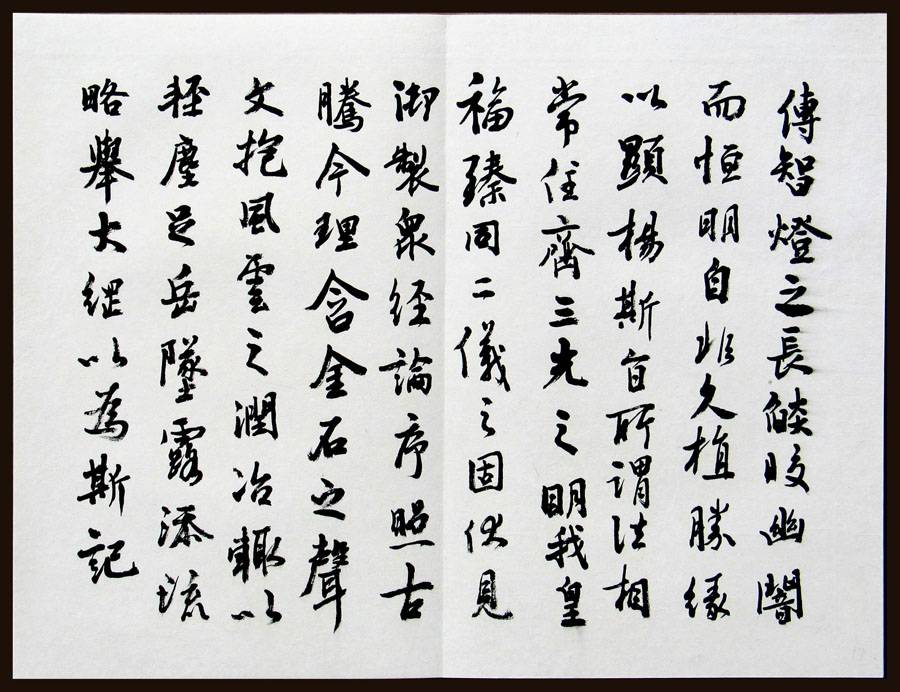 傳智燈之長燄皎幽闇
而恒明自非久植勝緣
以顯揚斯旨所謂法相
常住齊三光之明我皇
福臻同二儀之固伏見
御製眾經論序照古
騰今理含金石之聲
文抱風雲之潤治輒以
輕塵足岳墜露添流
略舉大綱以為斯記